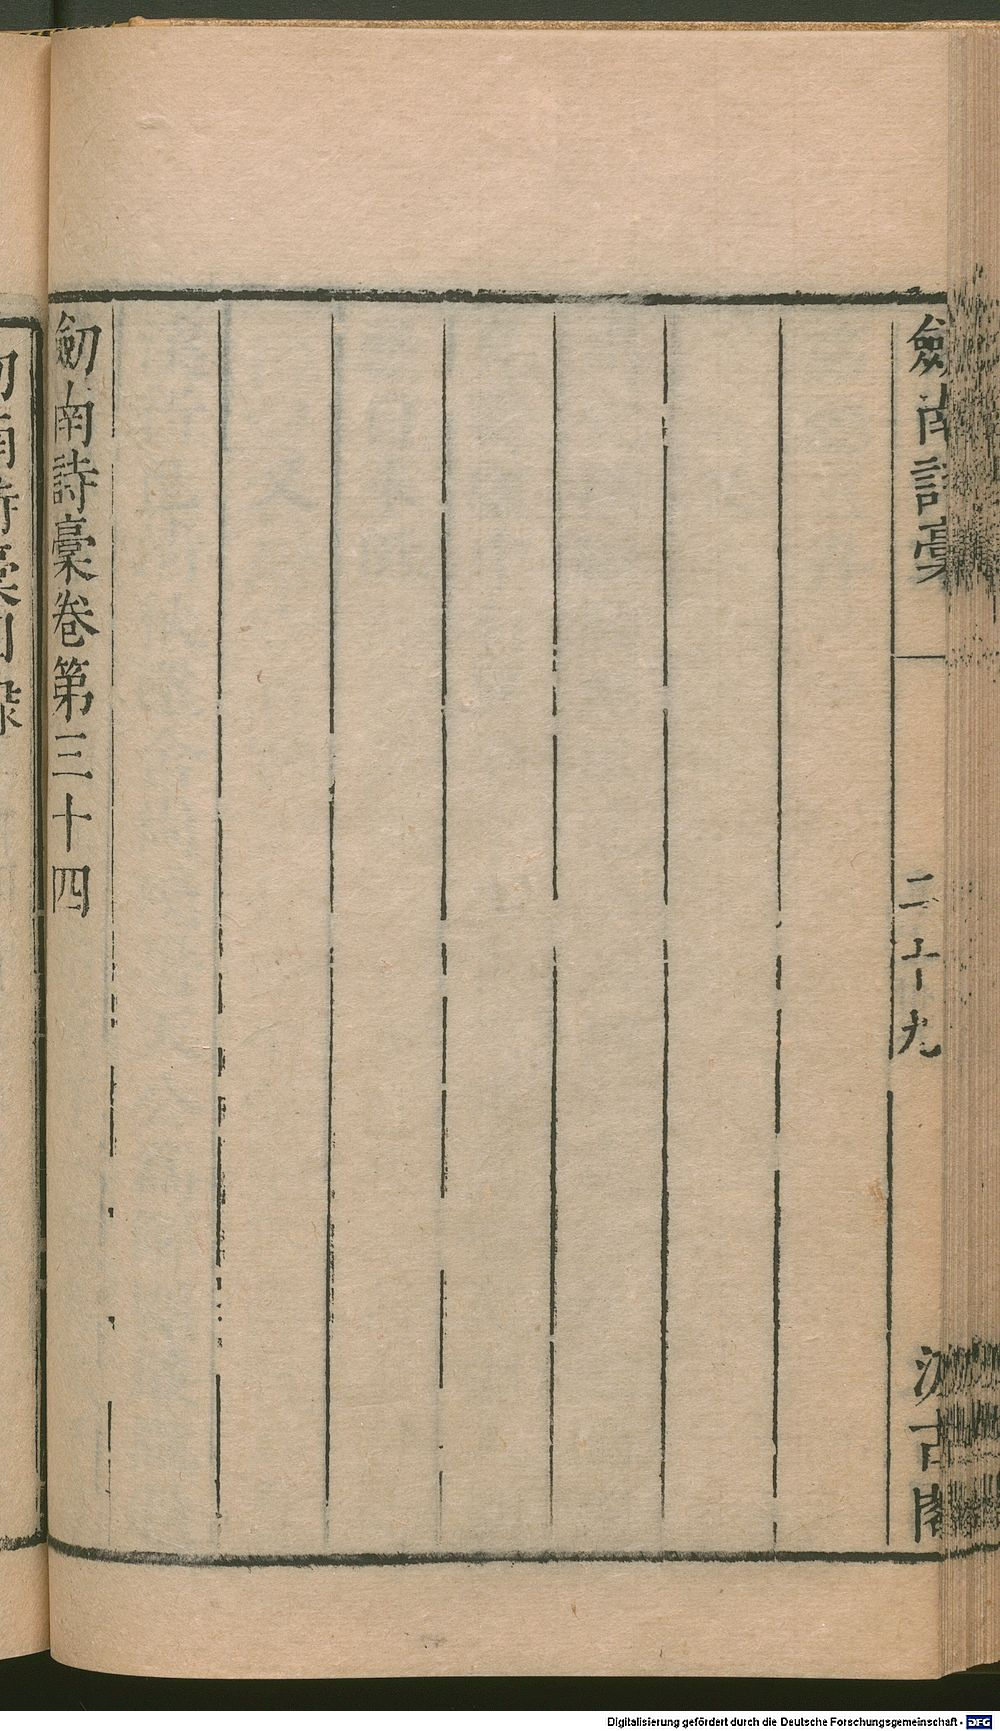 劒南詩稾
二十九
汲古閣
劒南詩稾卷第三十四
劒南詩稾目錄
Digitalisierung gefördert durch die Deutsche Forschungsgemeinschaft - DFG